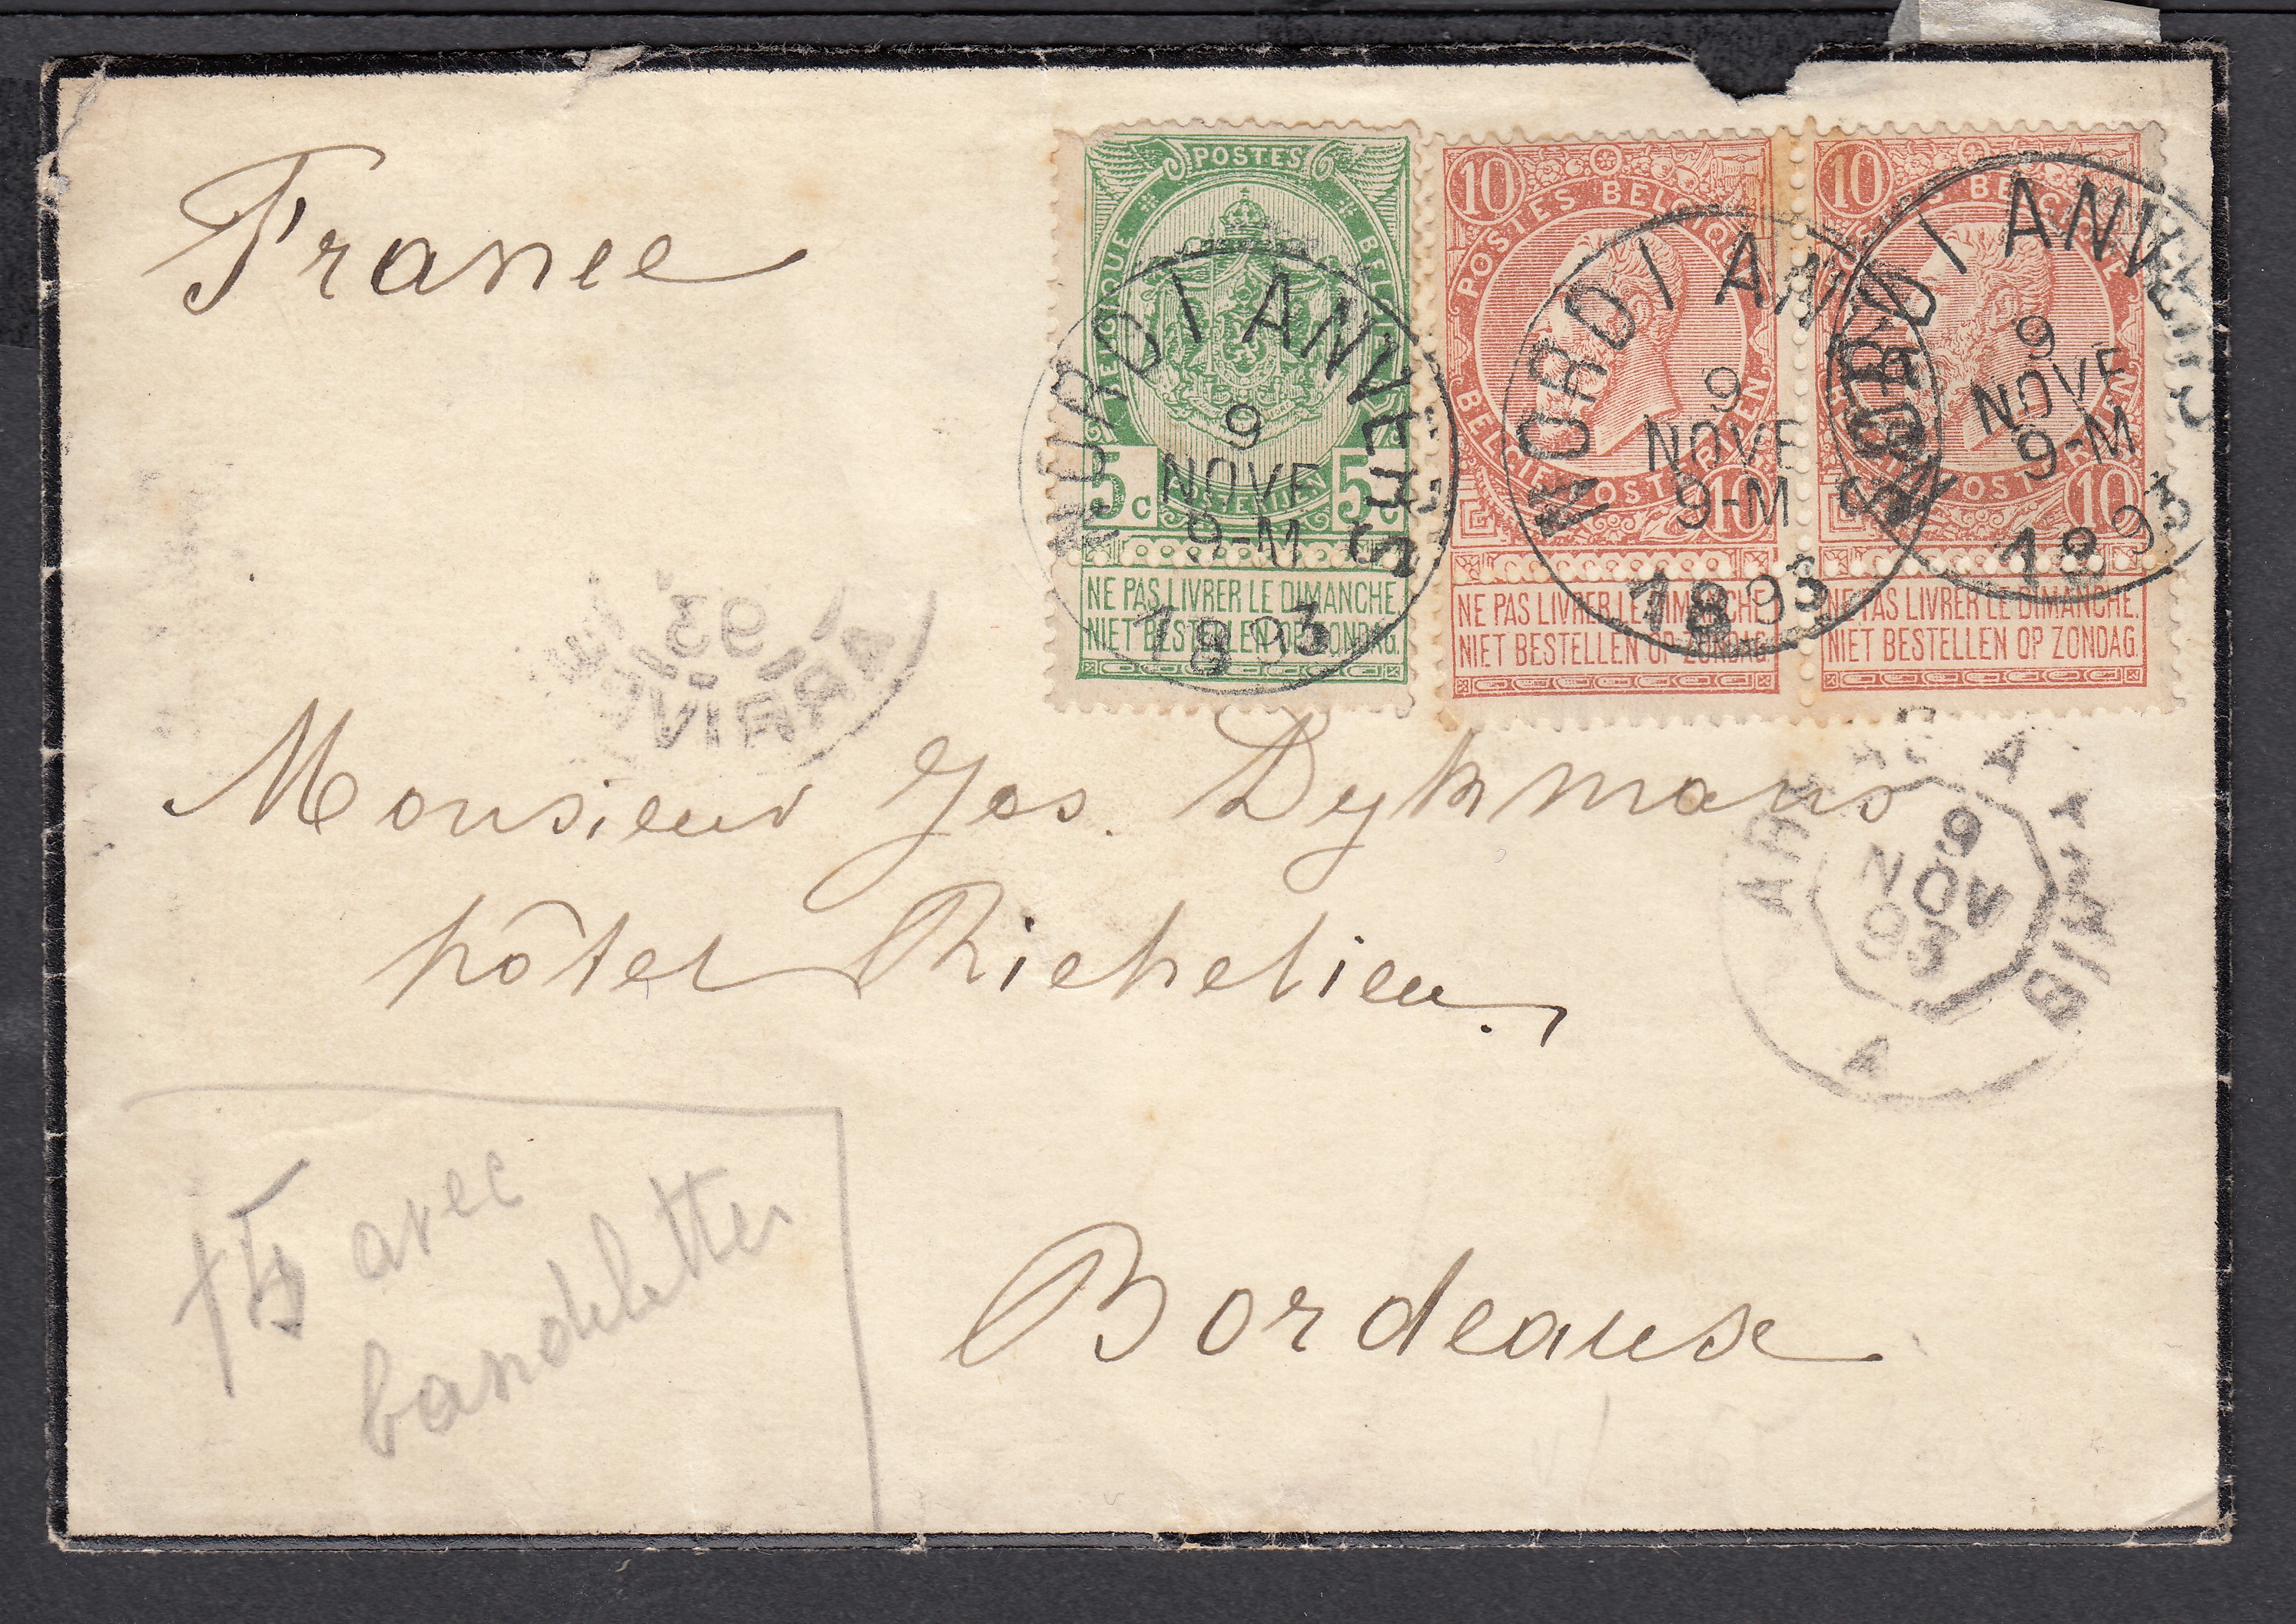 France
POSTES
BELGIQUE
BELGIË
5c
5c
POSTERIJEN
NE PAS LIVRER LE DIMANCHE.
NIET BESTELLEN OP ZONDAG.
10
POSTES BELGIQUE
BELGIE POSTERIJEN
10
NE PAS LIVRER LE DIMANCHE.
NIET BESTELLEN OP ZONDAG.
10
POSTES BELGIQUE
BELGIE POSTERIJEN
10
NE PAS LIVRER LE DIMANCHE.
NIET BESTELLEN OP ZONDAG.
NORD I ANVERS
9
NOVE
9-M
1893
NORD I ANVERS
9
NOVE
9-M
1893
NORD I ANVERS
9
NOVE
9-M
1893
93
Monsieur Jos. Dykmans
hôtel Richelieu.,
9
NOV
93
A
BIS
Bordeaux
avec
bandelettes